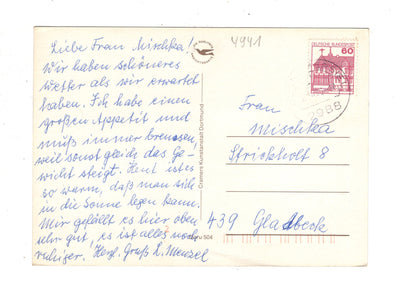 Liebe Frau Mischka!
Wir haben schöneres
Wetter als wir erwartet
haben. Ich habe einen
großen Appetit und
muß immer bremsen,
weil sonst gleich das Ge-
wicht steigt. Heut ist es
so warm, daß man sich
in die Sonne legen kann.
Mir gefällt es hier oben
sehr gut, es ist alles noch
ruhiger. Herzl. Gruß L. Menzel
Cramers Kunstanstalt Dortmund
504
4941
DEUTSCHE BUNDESPOST
60
Frau
Mischka
Strickholt 8
439 Gladbeck